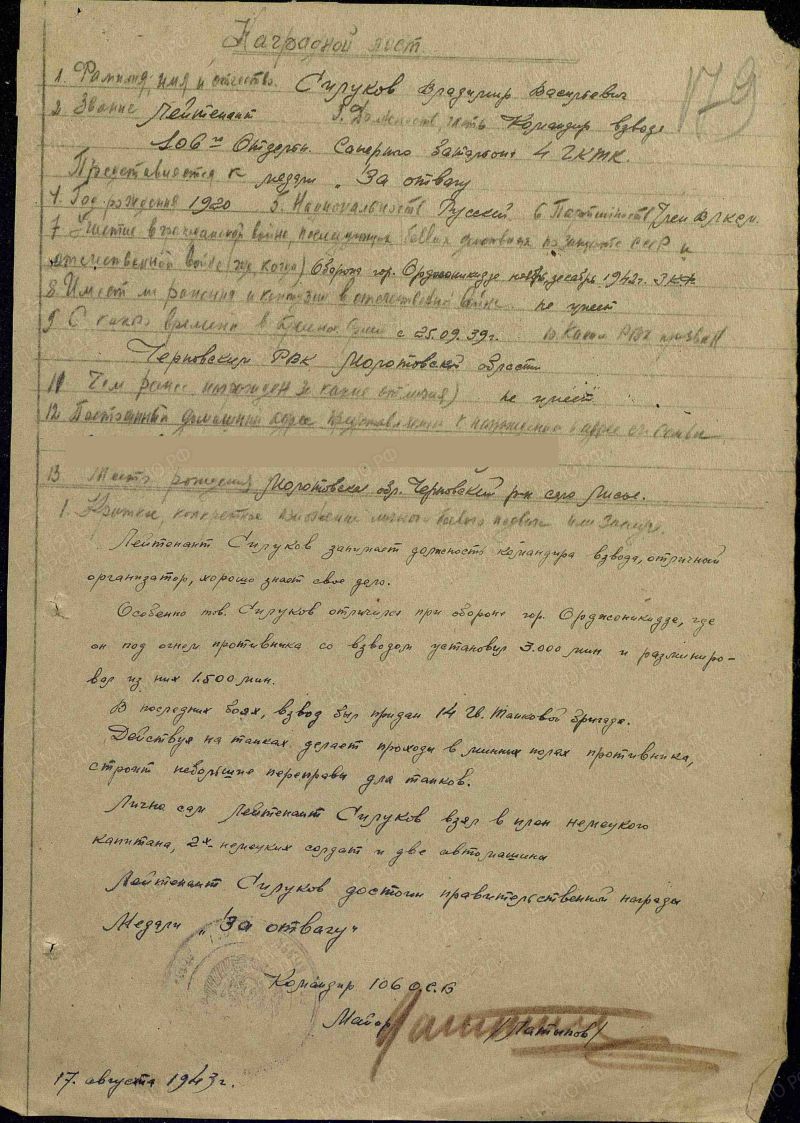 Наградной лист
1. Фамилия, имя и отчество. Силуков Владимир Васильевич
179
2. Звание Лейтенант 3. Должность, часть Командир взвода
106го Отдельн. Саперного батальона 4 ГКТК.
Представляется к медали „За отвагу
4. Год рождения 1920 5. Национальность Русский 6. Партийность Член ВЛКСМ.
7. Участие в гражданской войне, последующих боевых действиях по защите СССР и
отечественной войне (где, когда) Оборона гор. Орджоникидзе декабрь 1942г. ЗКФ
8. Имеет ли ранения и контузии в отечественной войне не имеет
9 С какого времени в Красной Армии с 25.09.39г. 10 Каким РВК призван
Черновским РВК Молотовской области
11 Чем ранее награжден (за какие отличия) не имеет
12. Постоянный домашний адрес представляемого к награждению и адрес его семьи
13 Место рождения Молотовская обл. Черновский р-н село Лисье.
1. Краткое, конкретное изложение личного боевого подвига или заслуг.
Лейтенант Силуков занимает должность командира взвода, отличный
организатор, хорошо знает свое дело.
Особенно тов. Силуков отличился при обороне гор. Орджоникидзе, где
он под огнем противника со взводом установил 3.000 мин и разминиро-
вал из них 1.500 мин.
В последних боях, взвод был придан 14 Гв. Танковой бригаде.
Действуя на танках делает проходы в минных полях противника,
строит небольшие переправы для танков.
Лично сам Лейтенант Силуков взял в плен немецкого
капитана, 2х немецких солдат и две автомашины
Лейтенант Силуков достоин правительственной награды
Медали „За отвагу“
Командир 106 О.С.Б
Майор /Латыпов/
17. августа 1943г.